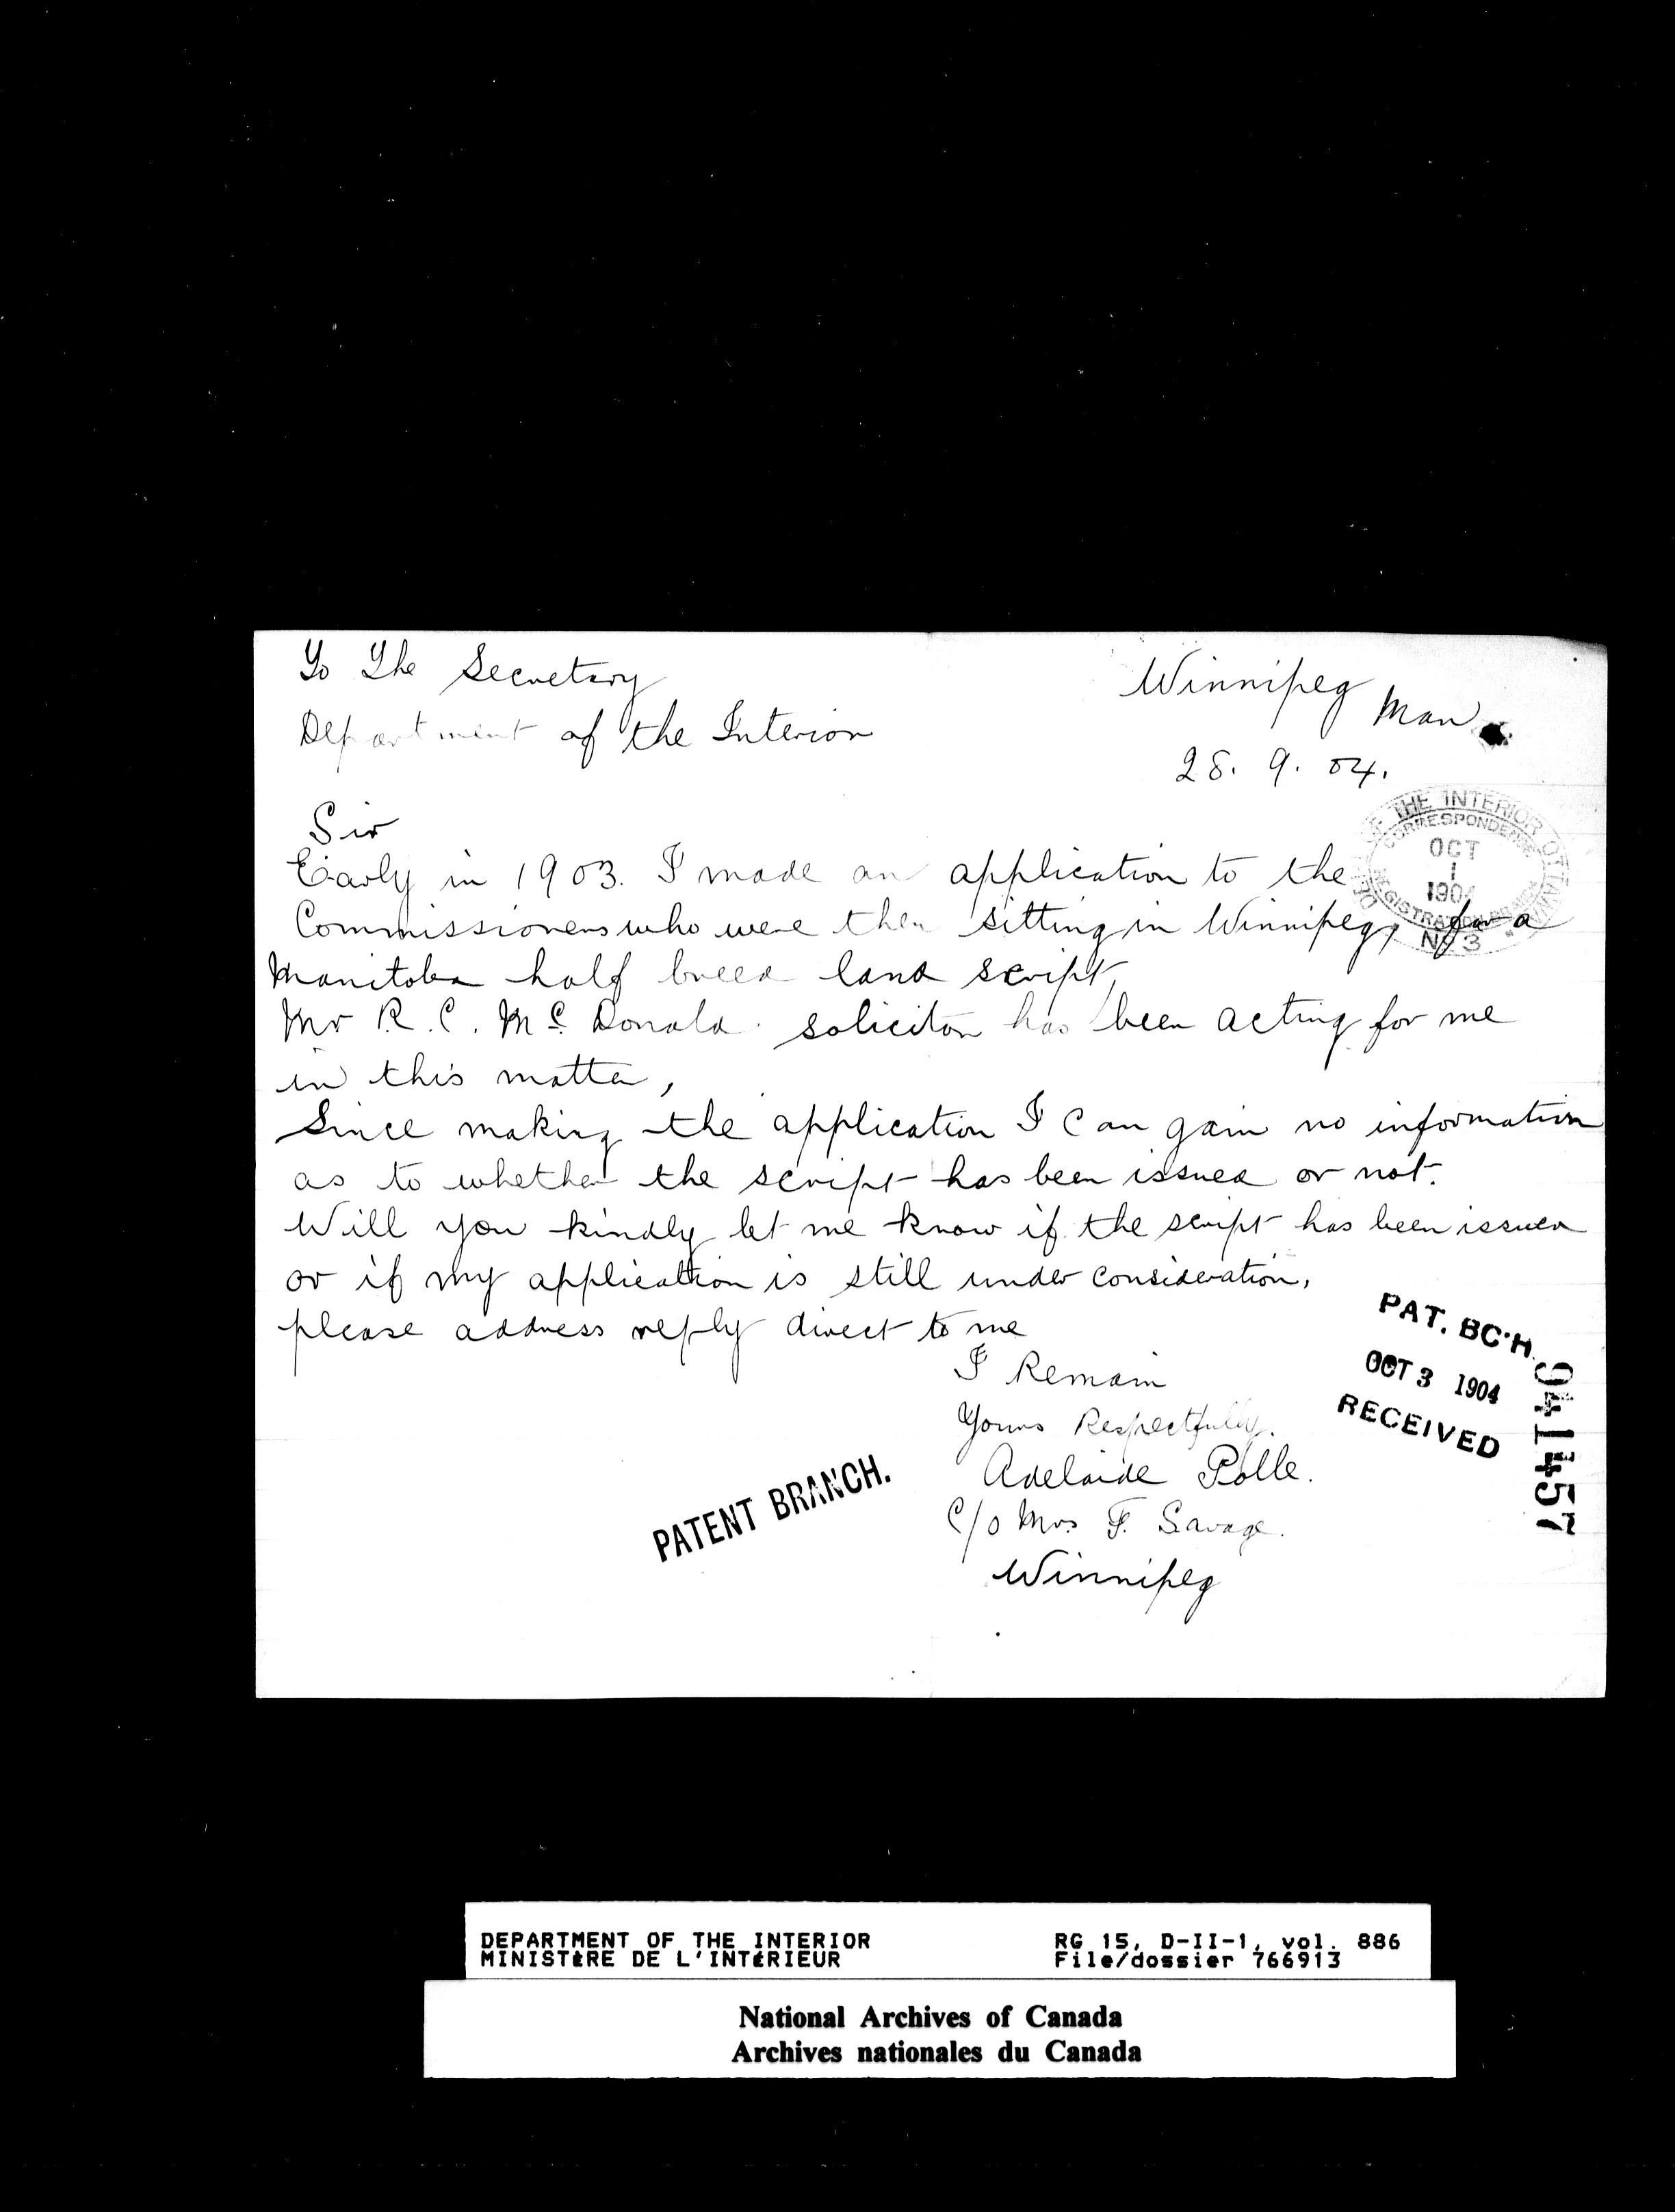 To The Secretary
Department of the Interior
Winnipeg Man
28. 9. 04.
Sir
Early in 1903. I made an application to the
Commissioners who were then sitting in Winnipeg, for a
Manitoba half breed land script,
Mr R. C. Mc Donald. solicitor has been acting for me
in this matter,
Since making the application I can gain no information
as to whether the script has been issued or not.
Will you kindly let me know if the script has been issued
or if my application is still under consideration,
please address reply direct to me
I Remain
Yours Respectfully.
Adelaide Polle.
C/o Mrs. F. Savage.
Winnipeg
THE INTERIOR OTTAWA
CORRESPONDENCE
OCT
1
1904
REGISTRATION BRANCH
No 3
PAT. BC'H.
OCT 3 1904
RECEIVED
941457
PATENT BRANCH.
DEPARTMENT OF THE INTERIOR
MINISTÈRE DE L'INTÉRIEUR
RG 15, D-II-1, vol. 886
File/dossier 766913
National Archives of Canada
Archives nationales du Canada